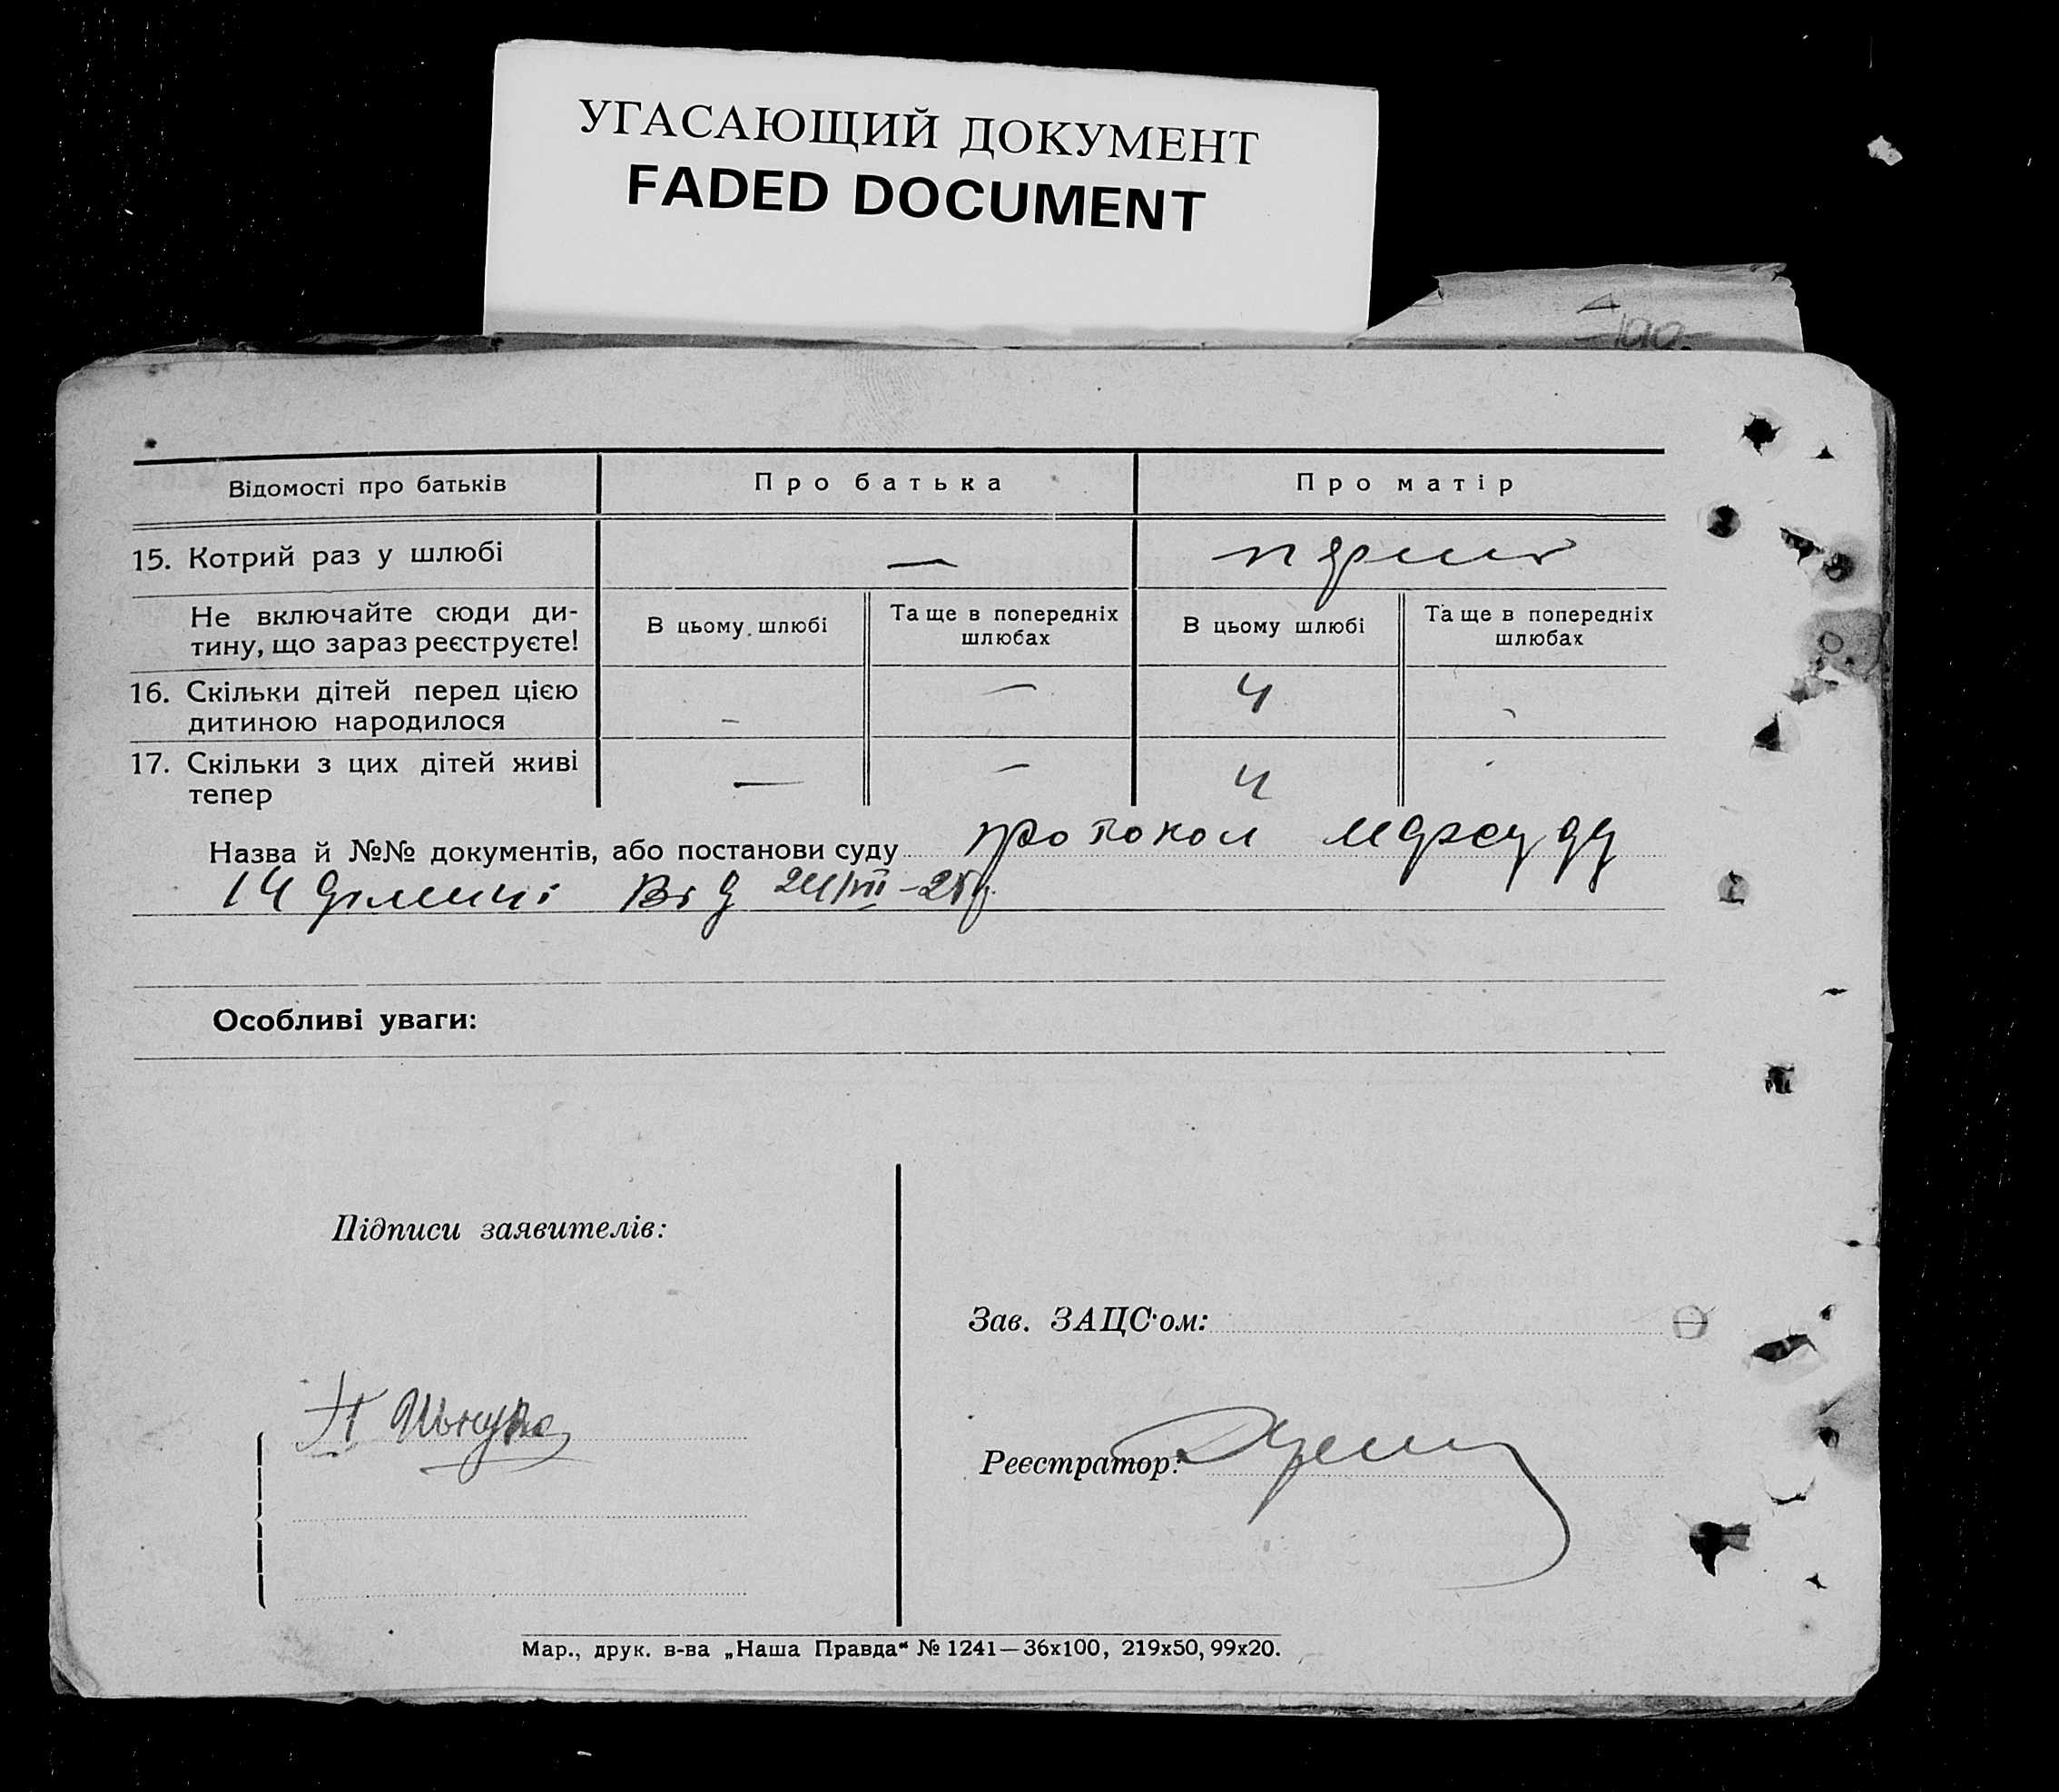 УГАСАЮЩИЙ ДОКУМЕНТ
FADED DOCUMENT
Відомості про батьків
Про батька
Про матір
15. Котрий раз у шлюбі
—
перший
Не включайте сюди ди-
тину, що зараз реєструєте!
В цьому шлюбі
Та ще в попередніх
шлюбах
В цьому шлюбі
Та ще в попередніх
шлюбах
16. Скільки дітей перед цією
дитиною народилося
-
-
4
17. Скільки з цих дітей живі
тепер
—
-
4
Назва й №№ документів, або постанови суду протокол нарсуду
14 дільниці від
Особливі уваги:
Підписи заявителів:
Зав. ЗАЦС'ом:
Реєстратор:
Мар., друк. в-ва „Наша Правда“ № 1241—36х100, 219х50, 99х20.